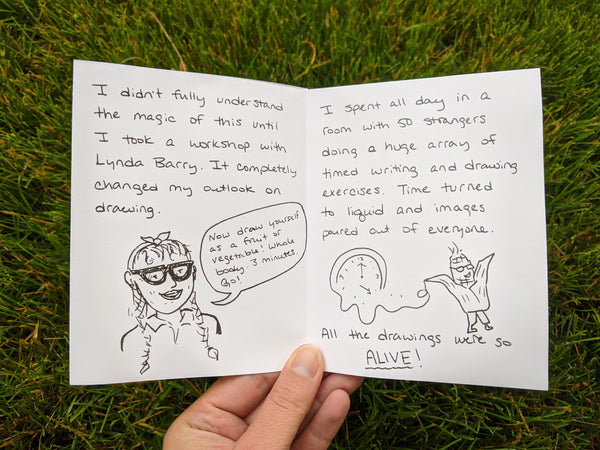 I didn't fully understand
the magic of this until
I took a workshop with
Lynda Barry. It completely
changed my outlook on
drawing.
Now draw yourself
as a fruit or
vegetable! Whole
body. 3 minutes.
Go!
I spent all day in a
room with 50 strangers
doing a huge array of
timed writing and drawing
exercises. Time turned
to liquid and images
poured out of everyone.
All the drawings were so
ALIVE!